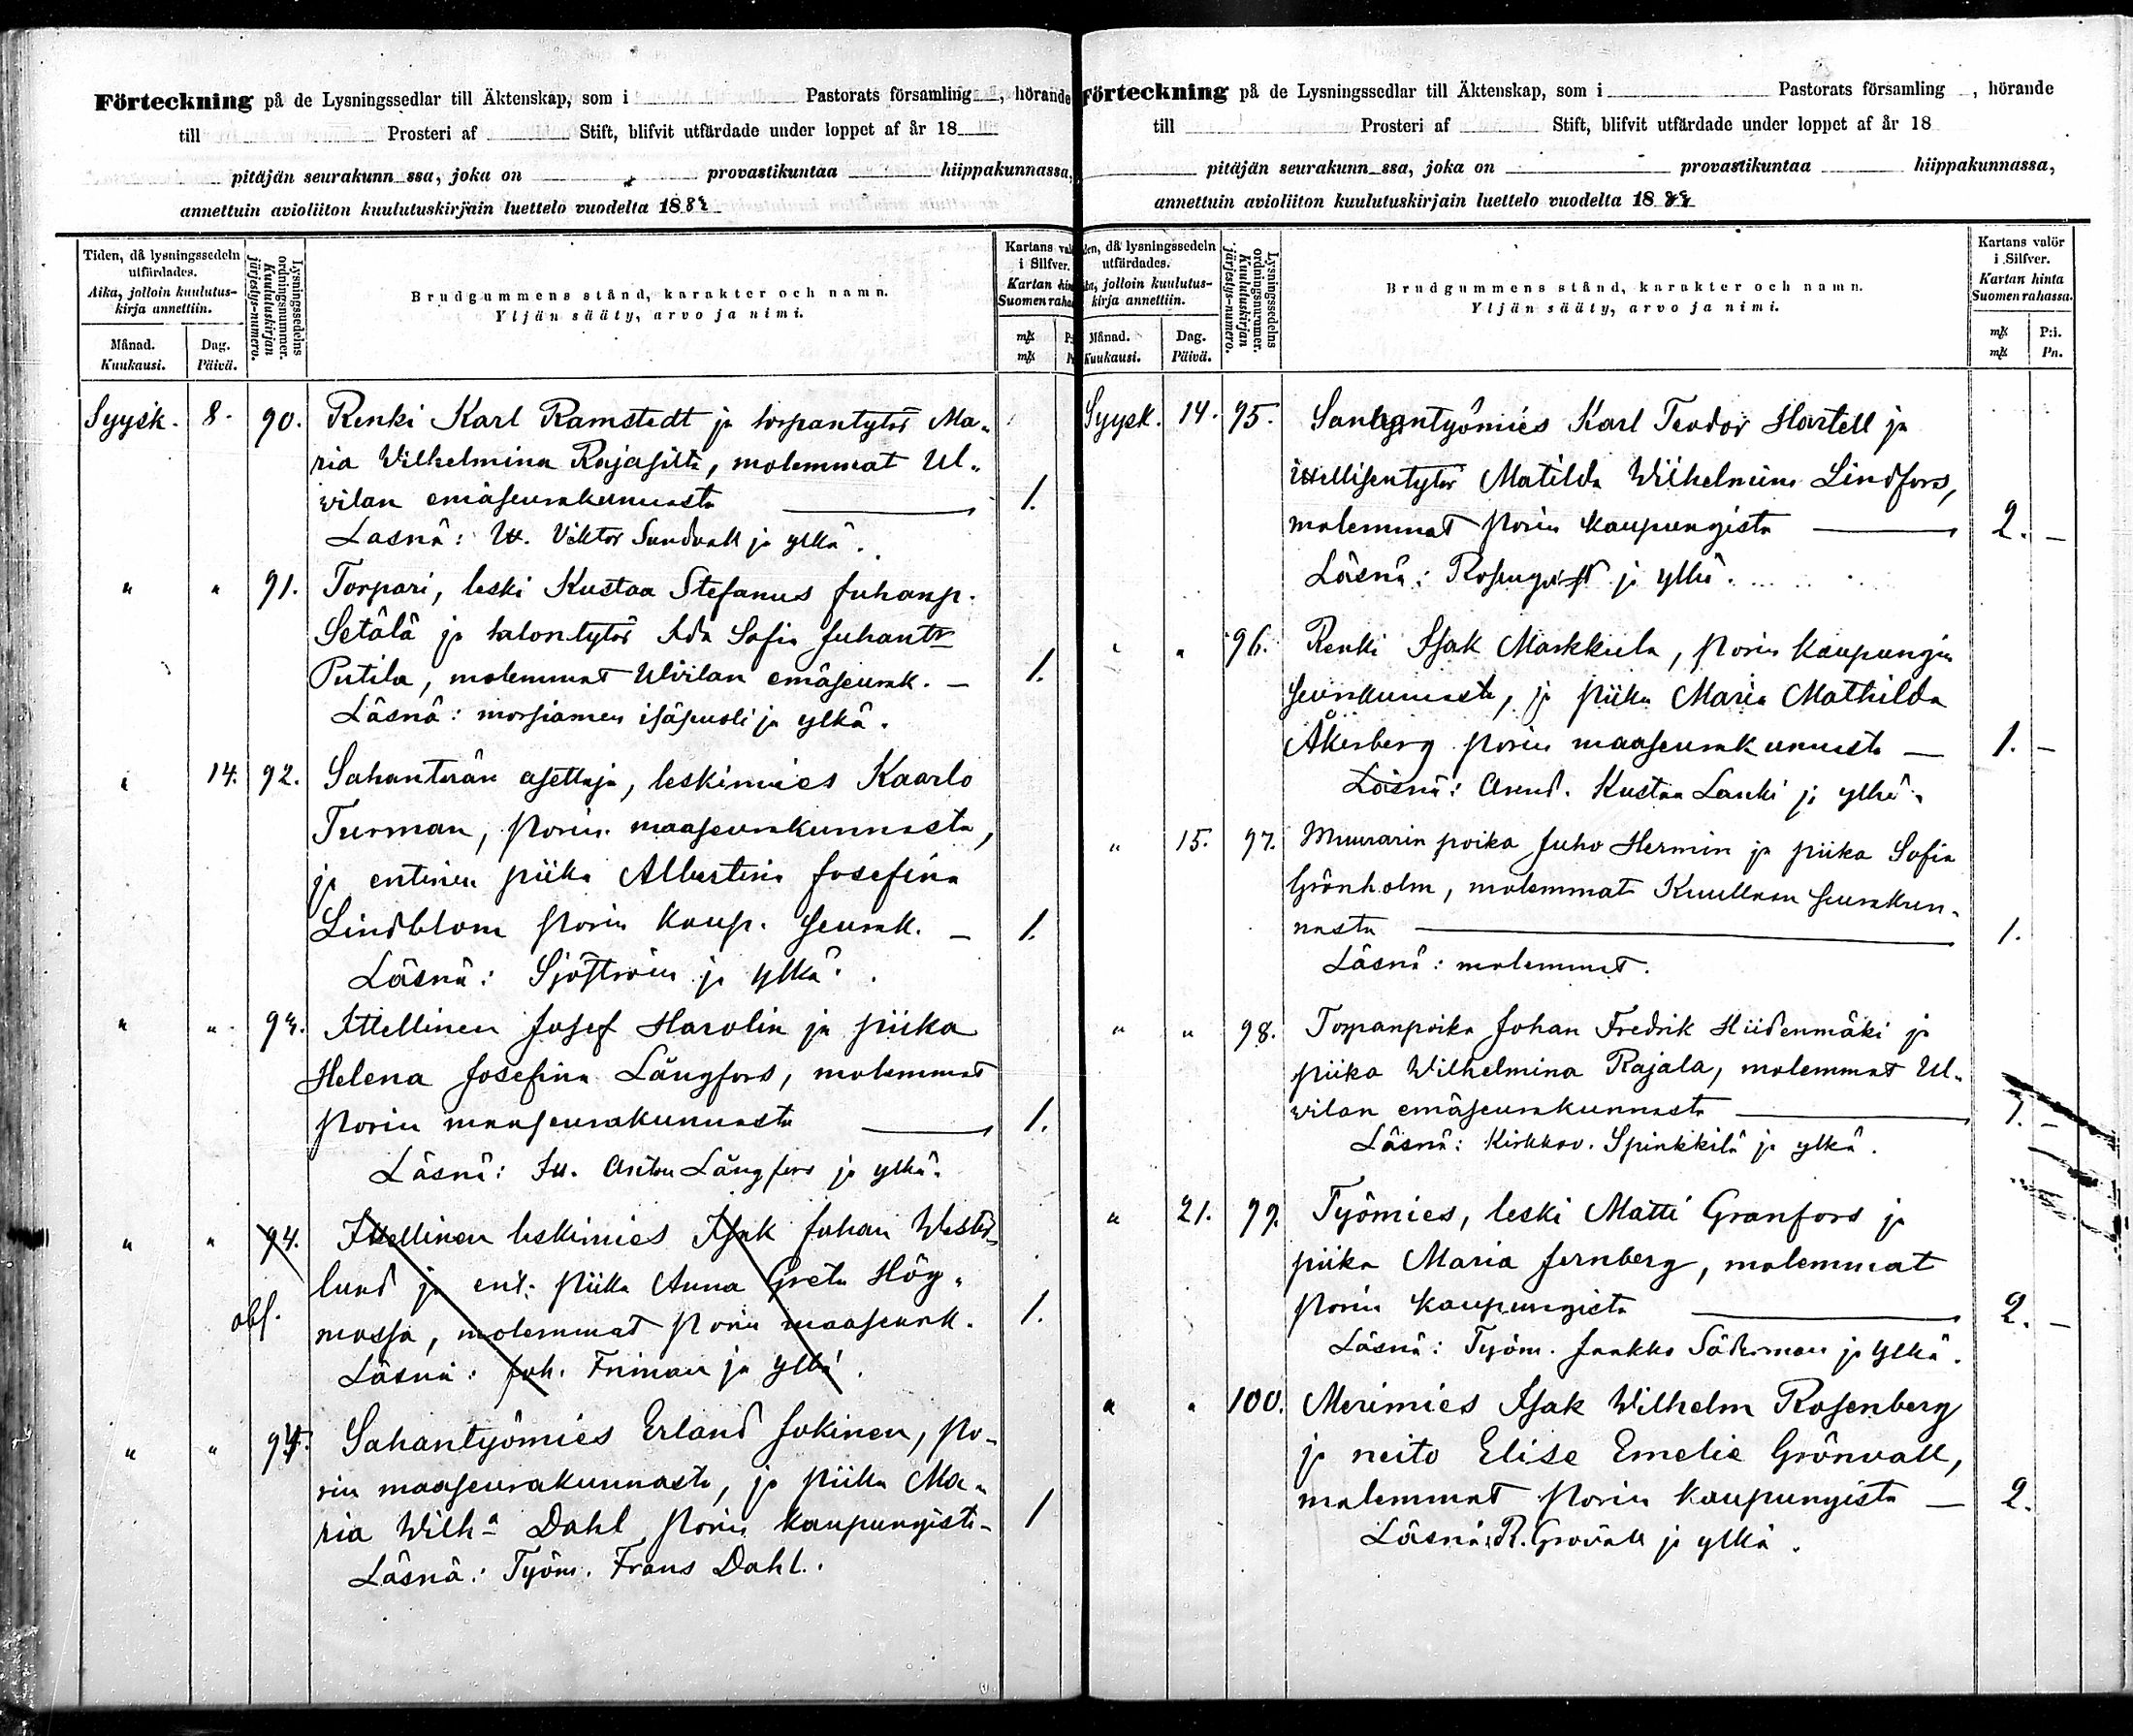 Förteckning på de Lysningssedlar till Äktenskap, som i Pastorats församling, hörande
till Prosteri af Stift, blifvit utfärdade under loppet af år 18
pitäjän seurakunn ssa, joka on provastikuntaa hiippakunnassa,
annettuin avioliiton kuulutuskirjain luettelo vuodelta 188
Tiden, då lysningssedeln utfärdades.
Aika, jolloin kuulutus-
kirja annettiin.
Månad. Dag.
Kuukausi. Päivä.
Lysningssedelns ordningsnummer.
Kuulutuskirjan järjestys-numero.
Brudgummens stånd, karakter och namn.
Yljän sääty, arvo ja nimi.
Kartans val
i Silfver.
Kartan hin
Suomen raha
Syysk. 8. 90. Renki Karl Ramstedt ja torpantytär Ma-
ria Wilhelmina Rajasilta, molemmat Ul-
vilan emäseurakunnasta 1.
Läsnä: Viktor Sundvall ja ylkä.
" " 91. Torpari, leski Kustaa Stefanus Juhanp.
Setälä ja talontytär Ida Sofia Juhantr
Putila, molemmat Ulvilan emäseurak. – 1.
Läsnä: morsiamen isäpuoli ja ylkä.
" 14. 92. Sahanterän asettaja, leskimies Kaarlo
Turman, Porin maaseurakunnasta,
ja entinen piika Albertina Josefina
Lindblom Porin kaup. seurak. – 1.
Läsnä: Sjöström ja ylkä.
" " 93. Itellinen Josef Harolin ja piika
Helena Josefina Långfors, molemmat
Porin maaseurakunnasta 1.
Läsnä: It. Anton Långfors ja ylkä.
" " 94. Itellinen leskimies Isak Johan Wester-
lund ja ent. piika Anna Greta Hög-
obs. mossa, molemmat Porin maaseurk. 1.
Läsnä: Joh. Friman ja ylkä.
" " 94. Sahantyömies Erland Jokinen, Po-
rin maaseurakunnasta, ja piika Ma-
ria Wilh:a Dahl Porin kaupungista – 1
Läsnä: Työm. Frans Dahl.
Förteckning på de Lysningssedlar till Äktenskap, som i Pastorats församling, hörande
till Prosteri af Stift, blifvit utfärdade under loppet af år 18
pitäjän seurakunn ssa, joka on provastikuntaa hiippakunnassa,
annettuin avioliiton kuulutuskirjain luettelo vuodelta 188
den, då lysningssedeln
utfärdades.
jolloin kuulutus-
kirja annettiin.
Månad. Dag.
Kuukausi. Päivä.
Lysningssedelns ordningsnummer.
Kuulutuskirjan järjestys-numero.
Brudgummens stånd, karakter och namn.
Yljän sääty, arvo ja nimi.
Kartans valör
i Silfver.
Kartan hinta
Suomen rahassa.
mk P:i.
mk Pn.
Syysk. 14. 95. Sahantyömies Karl Teodor Hartell ja
itellisentytär Matilda Wilhelmina Lindfors,
molemmat Porin kaupungista 2. –
Läsnä: Rosenqvist ja ylkä.
" " 96. Renki Isak Markkula, Porin kaupungin
seurakunnasta, ja piika Maria Mathilda
Åkerberg Porin maaseurakunnasta – 1. –
Läsnä: Kustaa Lauki ja ylkä.
" 15. 97. Muurarin poika Juho Hermin ja piika Sofia
Grönholm, molemmat Kuullaan seurakun-
nasta 1.
Läsnä: molemmat.
" " 98. Torpanpoika Johan Fredrik Hiidenmäki ja
piika Wilhelmina Rajala, molemmat Ul-
vilan emäseurakunnasta 1. –
Läsnä: Kirkkov. Spinkkilä ja ylkä.
" 21. 99. Työmies, leski Matti Granfors ja
piika Maria Jernberg, molemmat
Porin kaupungista 2. –
Läsnä: Työm. Jaakko Söderman ja ylkä.
" " 100. Merimies Isak Wilhelm Rosenberg
ja neito Elise Emelie Grönvall,
molemmat Porin kaupungista – 2.
Läsnä: R. Grövall ja ylkä.